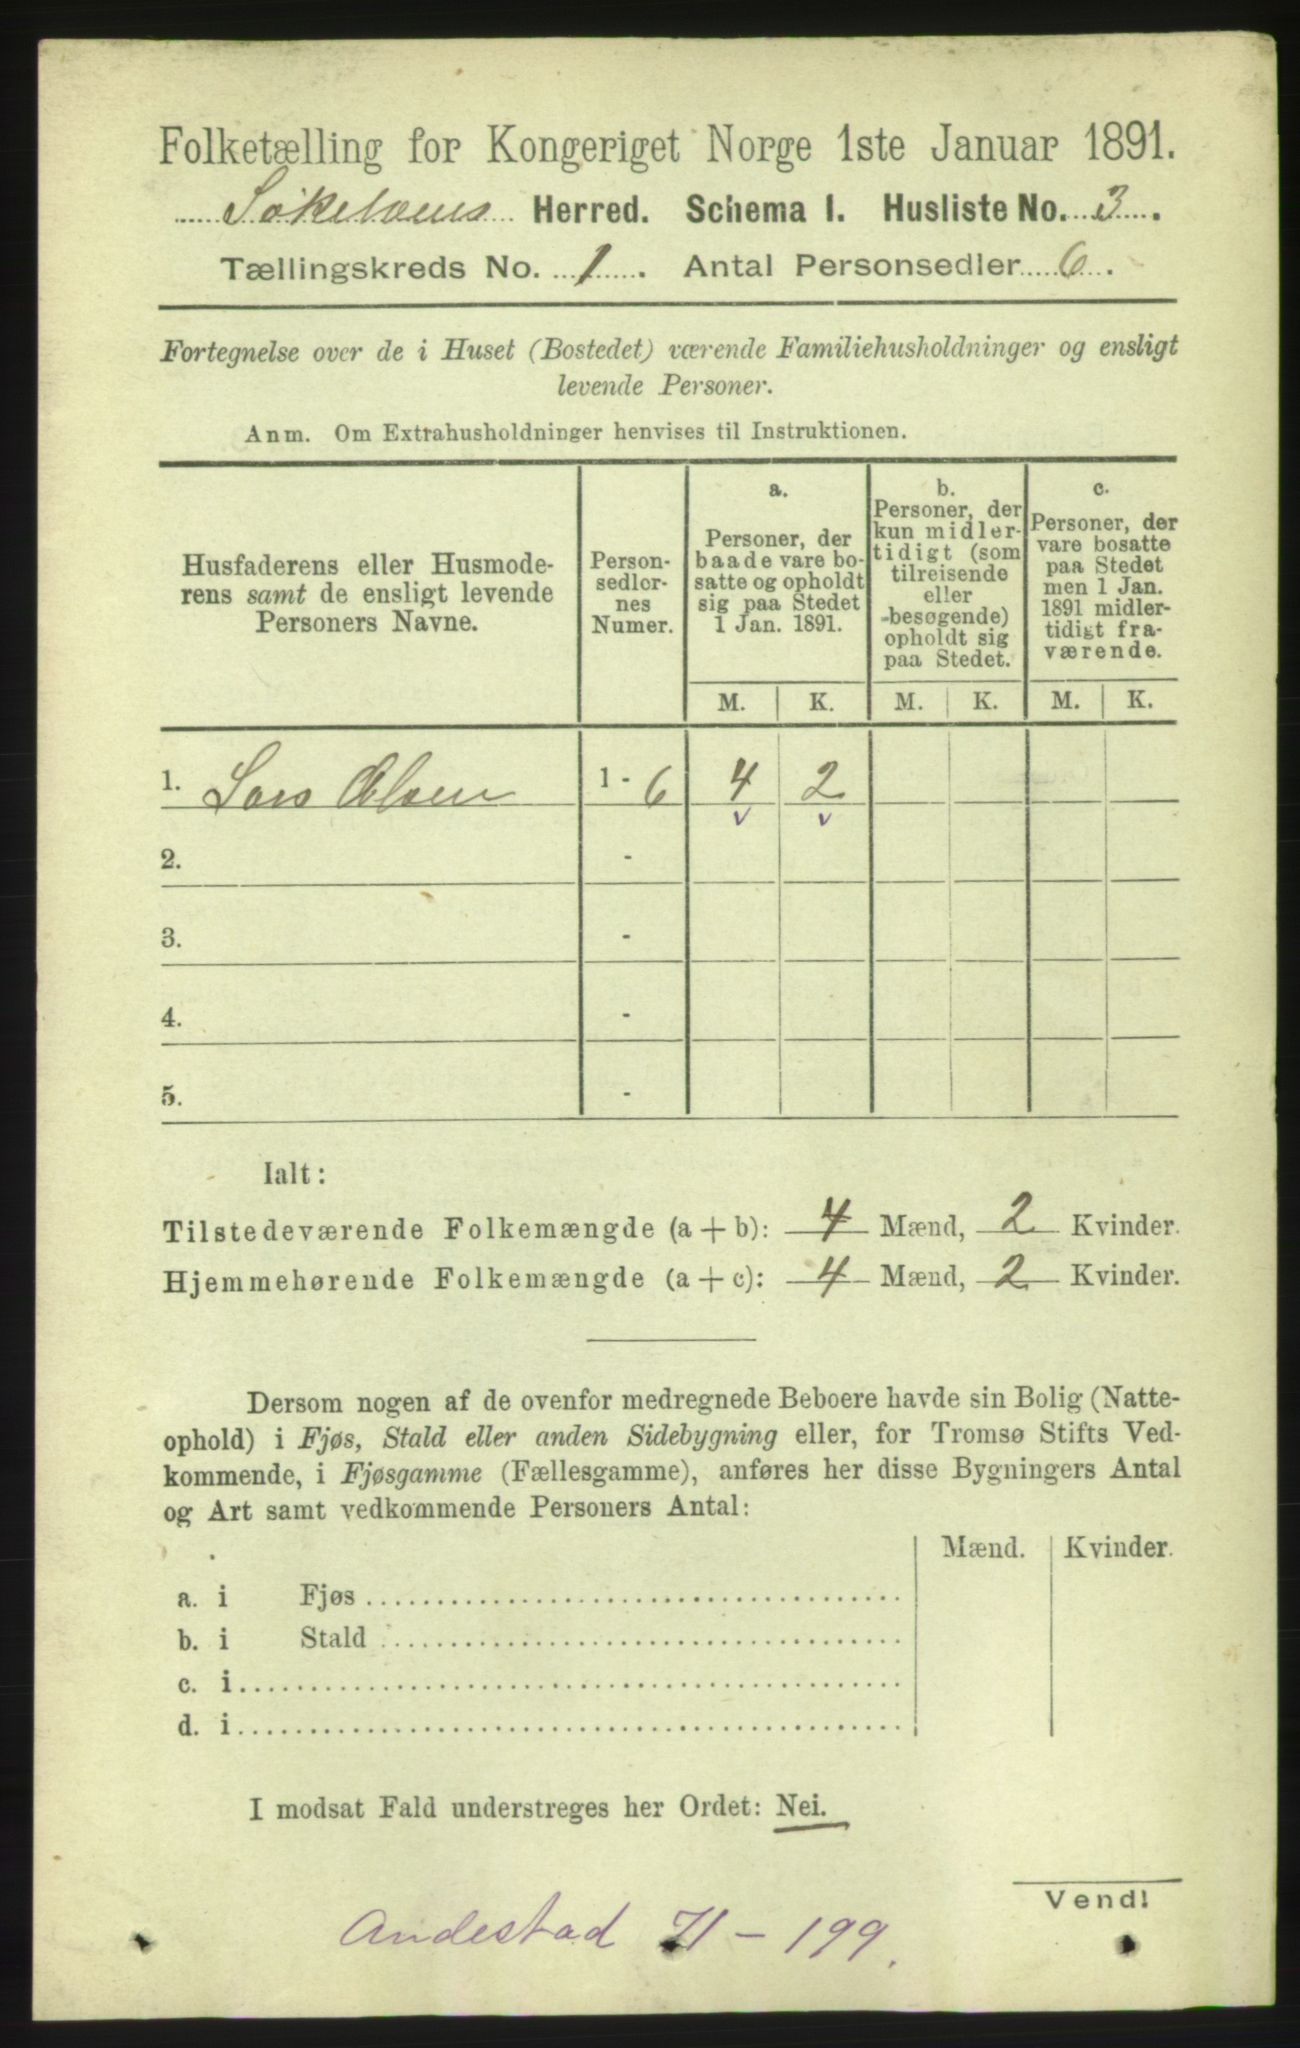 Folketælling for Kongeriget Norge 1ste Januar 1891.
Søkelvens Herred. Schema I. Husliste No. 3.
Tællingskreds No. 1. Antal Personsedler 6.
Fortegnelse over de i Huset (Bostedet) værende Familiehusholdninger og ensligt
levende Personer.
Anm. Om Extrahusholdninger henvises til Instruktionen.
Husfaderens eller Husmode-
rens samt de ensligt levende
Personers Navne.
Person-
sedler-
nes
Numer.
a.
Personer, der
baade vare bo-
satte og opholdt
sig paa Stedet
1 Jan. 1891.
b.
Personer, der
kun midler-
tidigt (som
tilreisende
eller
besøgende)
opholdt sig
paa Stedet.
c.
Personer, der
vare bosatte
paa Stedet
men 1 Jan.
1891 midler-
tidigt fra-
værende.
M. K. M. K. M. K.
1. Lars Olsen 1 - 6 4 2
v v
2. -
3. -
4. -
5. -
Ialt:
Tilstedeværende Folkemængde (a + b): 4 Mænd, 2 Kvinder.
Hjemmehørende Folkemængde (a + c): 4 Mænd, 2 Kvinder.
Dersom nogen af de ovenfor medregnede Beboere havde sin Bolig (Natte-
ophold) i Fjøs, Stald eller anden Sidebygning eller, for Tromsø Stifts Ved-
kommende, i Fjøsgamme (Fællesgamme), anføres her disse Bygningers Antal
og Art samt vedkommende Personers Antal:
Mænd. Kvinder.
a. i Fjøs
b. i Stald
c. i
d. i
I modsat Fald understreges her Ordet: Nei.
Vend!
Andestad 71 - 199.